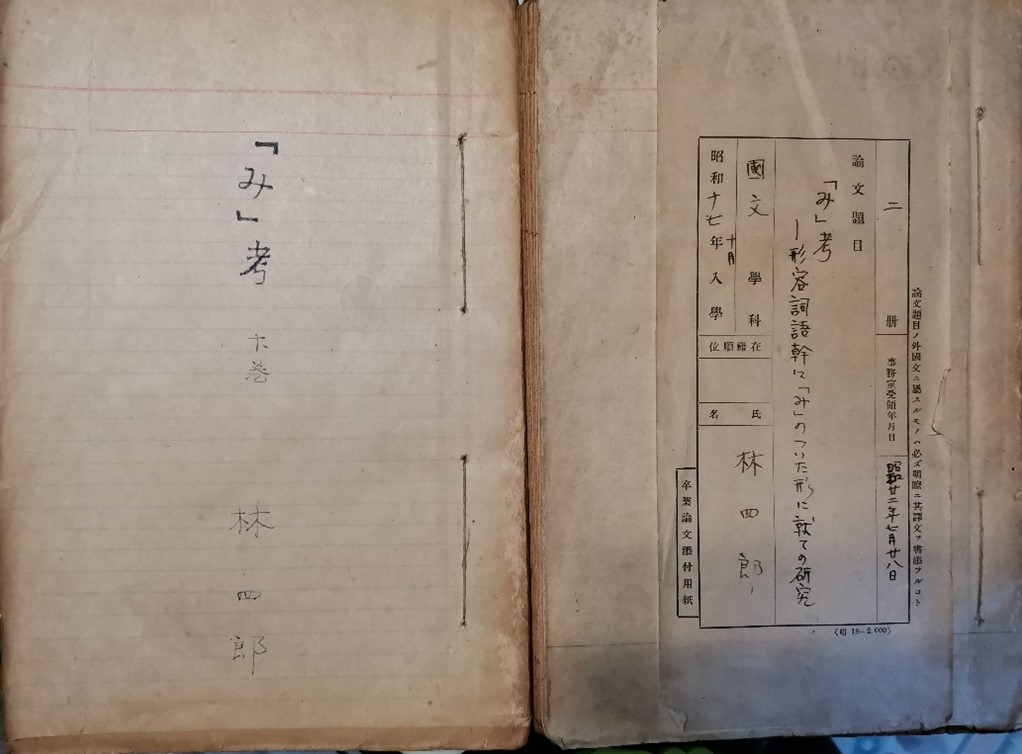 論文題目ノ外國文ニ屬スルモノハ必ズ明瞭ニ其譯文ヲ書添フルコト
二 册
事務室受領年月日
昭和廿二年七月廿八日
論文題目
「み」考
―形容詞語幹に「み」のついた形に就ての研究
國文 學科
昭和十七年十月入學
在籍順位
氏名
林四郎
卒業論文添付用紙
(昭 18―2,000)
「み」考
下巻
林四郎